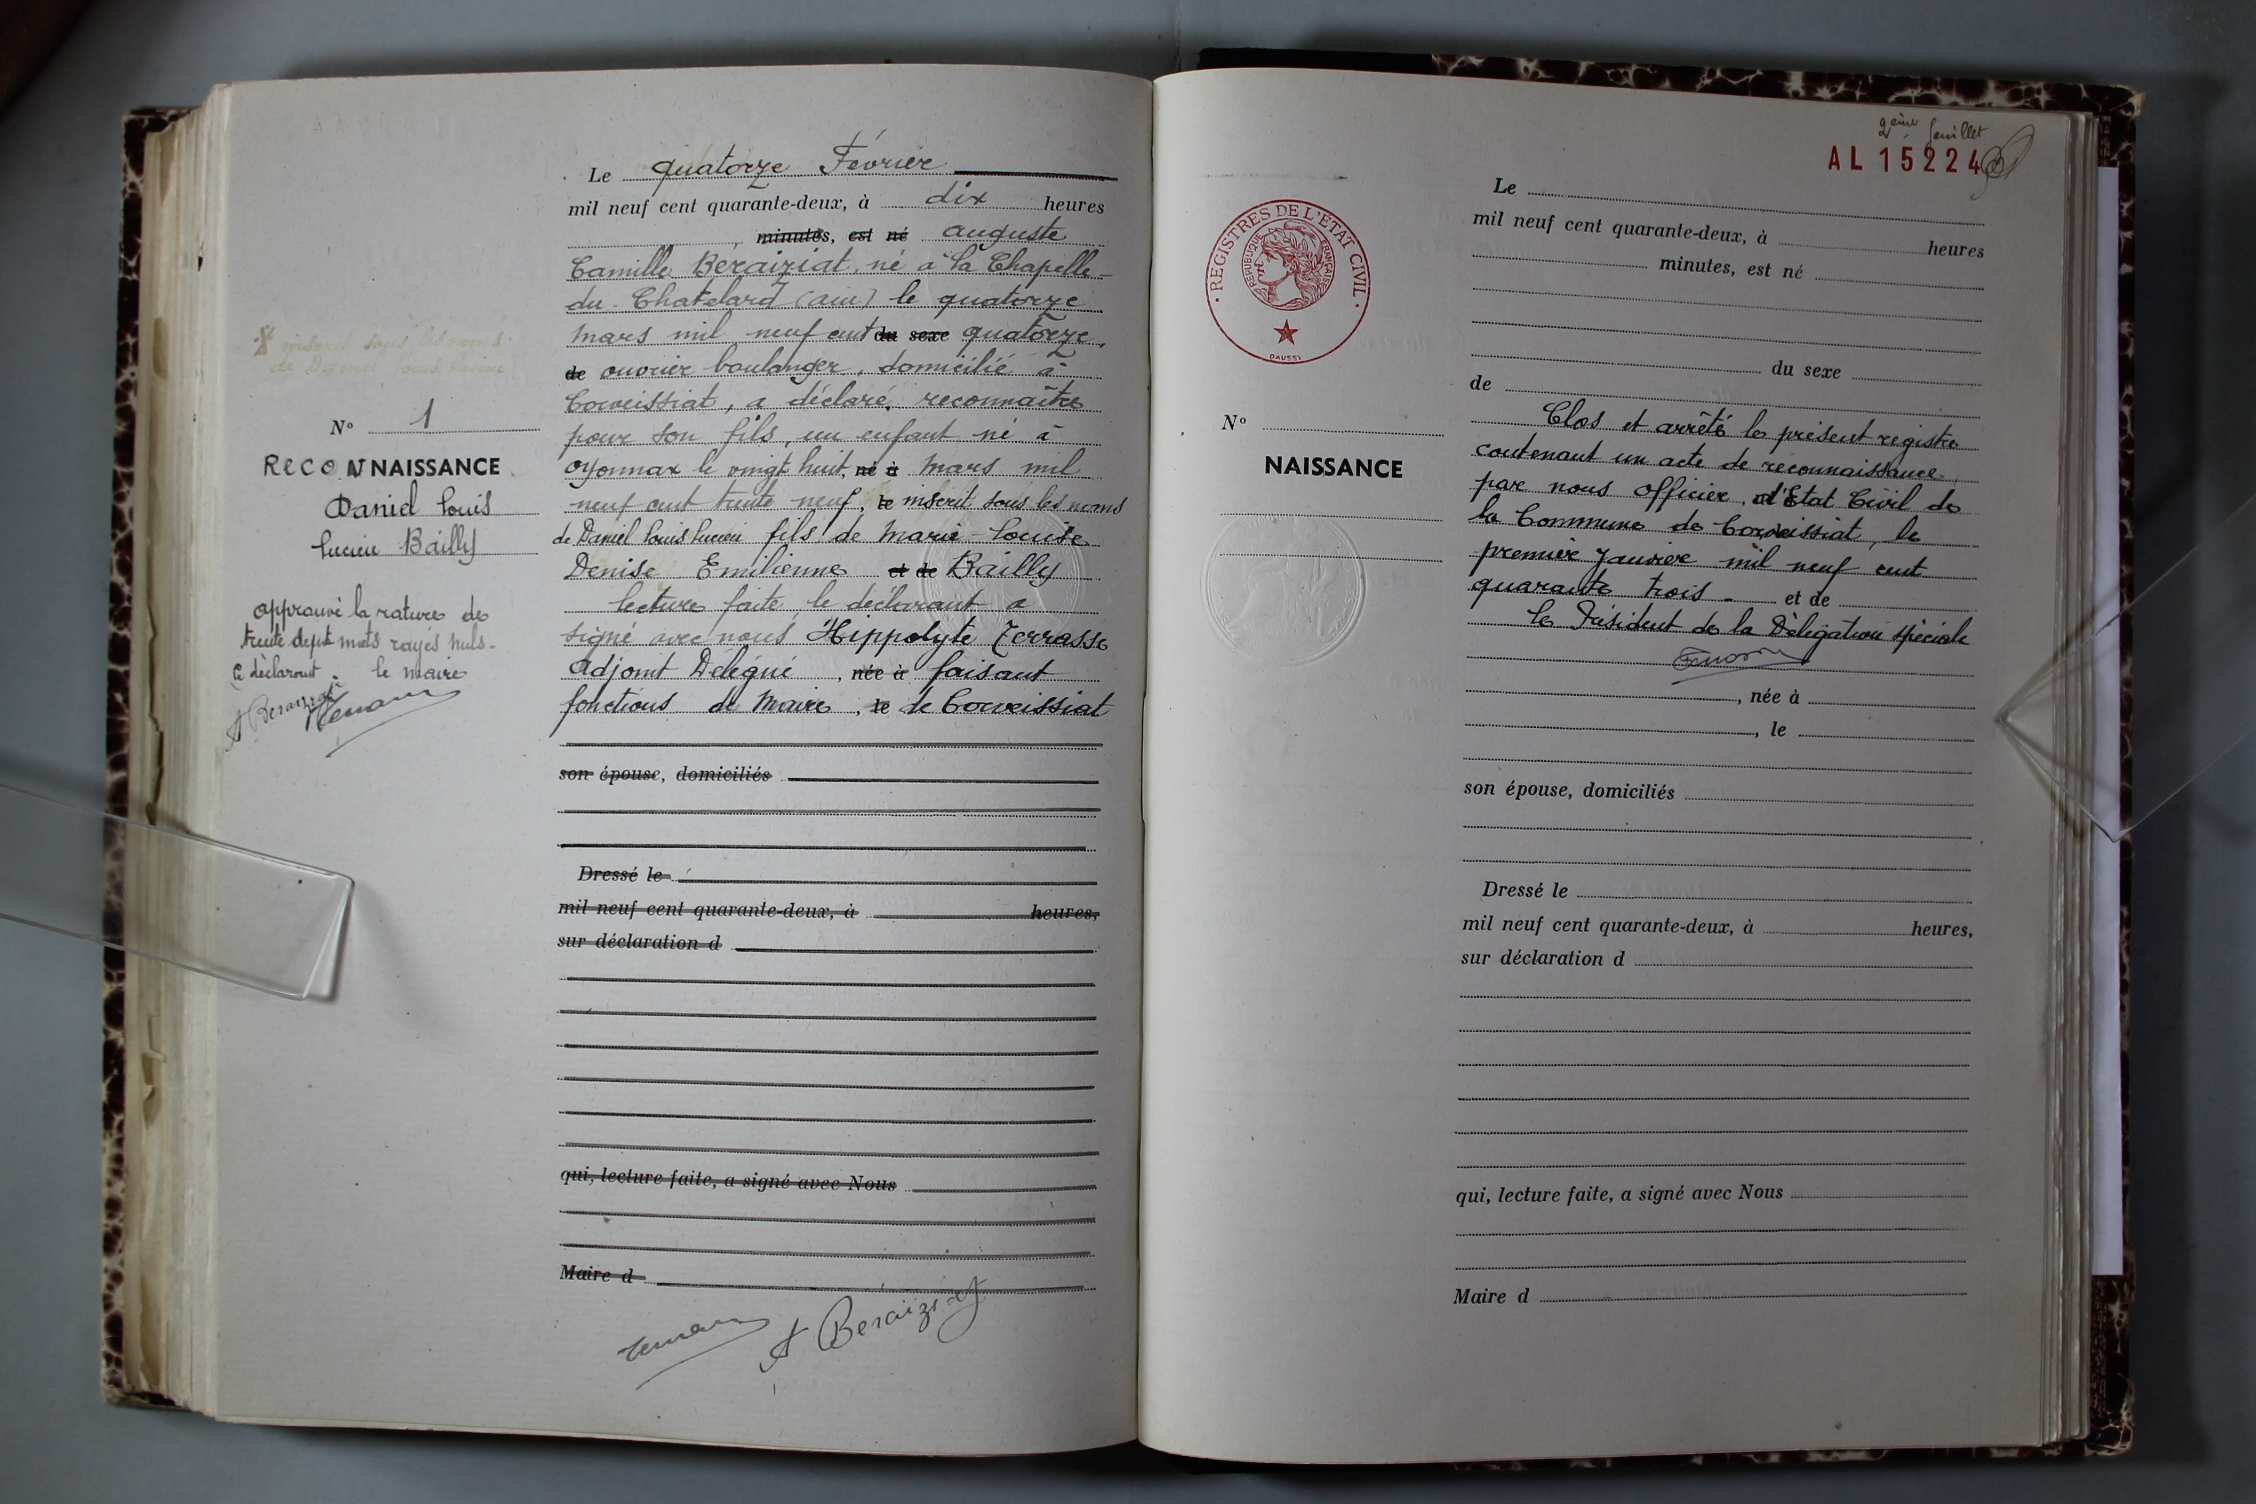 Le quatorze Février
mil neuf cent quarante-deux, à dix heures
minutes, est né auguste
Camille Béraiziat, né à la Chapelle-
du-Chatelard (ain) le quatorze
mars mil neuf cent du sexe quatorze,
de ouvrier boulanger, domicilié à
Corveissiat, a déclaré, reconnaître
pour son fils, un enfant né à
Oyonnax le vingt huit, né à mars mil
neuf cent trente neuf, le inscrit sous les noms
de Daniel Louis Lucien fils de Marie-Louise
Denise Emilienne et de Bailly
lecture faite le déclarant a
signé avec nous Hippolyte Terrasse
adjoint Délégué, née à faisant
fonctions de Maire, le de Corveissiat
son épouse, domiciliés
Dressé le
mil neuf cent quarante-deux, à heures,
sur déclaration d
qui, lecture faite, a signé avec Nous
Maire d
A Béraiziat
inscrit sous les noms
de Daniel Louis Lucien
N° 1
RECONNAISSANCE
Daniel Louis
Lucien Bailly
approuvé la rature de
trente sept mots rayés nuls.
Le déclarant le maire
A Beraiziat
2ème feuillet
AL 15224
REGISTRES DE L'ETAT CIVIL
REPUBLIQUE FRANÇAISE
DAUSSY
N°
NAISSANCE
Le
mil neuf cent quarante-deux, à heures
minutes, est né
du sexe
de
Clos et arrêté le présent registre
contenant un acte de reconnaissance,
par nous officier d'Etat Civil de
la Commune de Corveissiat, le
premier Janvier mil neuf cent
quarante trois - et de
Le Président de la Délégation spéciale
, née à
, le
son épouse, domiciliés
Dressé le
mil neuf cent quarante-deux, à heures,
sur déclaration d
qui, lecture faite, a signé avec Nous
Maire d